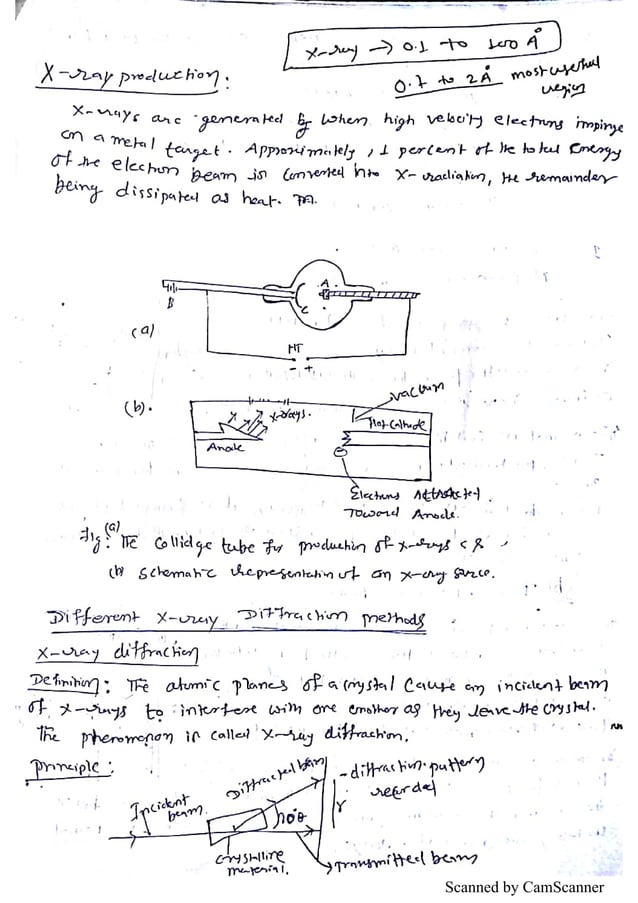 X-ray → 0.1 to 100 Å
0.7 to 2Å most useful
region
X-ray production:
X-rays are generated by when high velocity electrons impinge
on a metal target. Approximately, 1 percent of the total energy
of the electron beam is converted into X-radiation, the remainder
being dissipated as heat.
B
A
C
(a)
HT
- +
(b).
X-rays.
vacuum
Hot-Cathode
Anode
Electrons Attracted
Toward Anode.
Fig: (a) The Collidge tube for production of x-rays &
(b) Schematic representation of an x-ray source.
Different X-ray Diffraction methods
X-ray diffraction
Definition: The atomic planes of a crystal cause an incident beam
of x-rays to interfere with one another as they leave the crystal.
The phenomenon is called X-ray diffraction.
Principle:
Incident
beam
Diffracted beam
- diffraction pattern
recorded
r
Crystalline
material.
Transmitted beam
Scanned by CamScanner